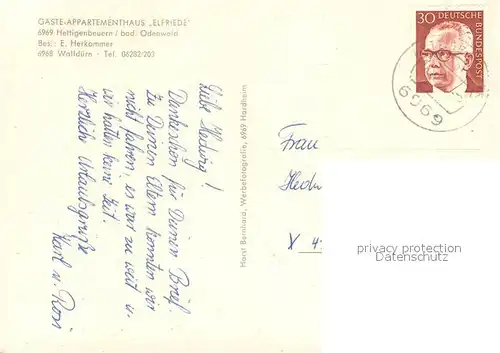 GÄSTE-APPARTEMENTHAUS „ELFRIEDE"
6969 Hettigenbeuern / bad. Odenwald
Bes.: E. Herkommer
6968 Walldürn - Tel. 06282/203
Liebe Hedwig!
Dankeschön für Deinen Brief.
Zu Deinen Eltern konnten wir
nicht fahren, es war zu weit u.
wir hatten keine Zeit.
Herzliche Urlaubsgrüße
Karl u. Rosi
Horst Bernhard, Werbefotografie, 6969 Hardheim
30 DEUTSCHE
BUNDESPOST
6969
Frau
X 4
privacy protection
Datenschutz